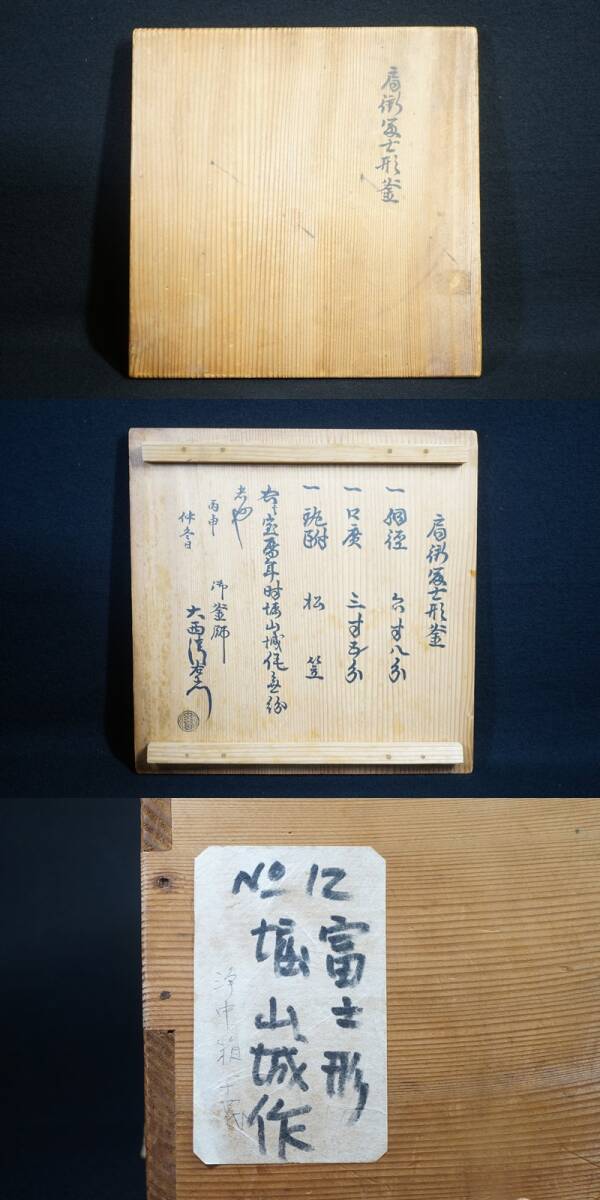 肩衝冨士形釜
肩衝冨士形釜
一 胴径 六寸八分
一 口広 三寸五分
一 鐶附 松笠
右者宝暦年時堀山城作無紛
者也
丙申
仲冬日
御釜師
大西清右衛門
No 12
富士形
堀山城作
浄中箱